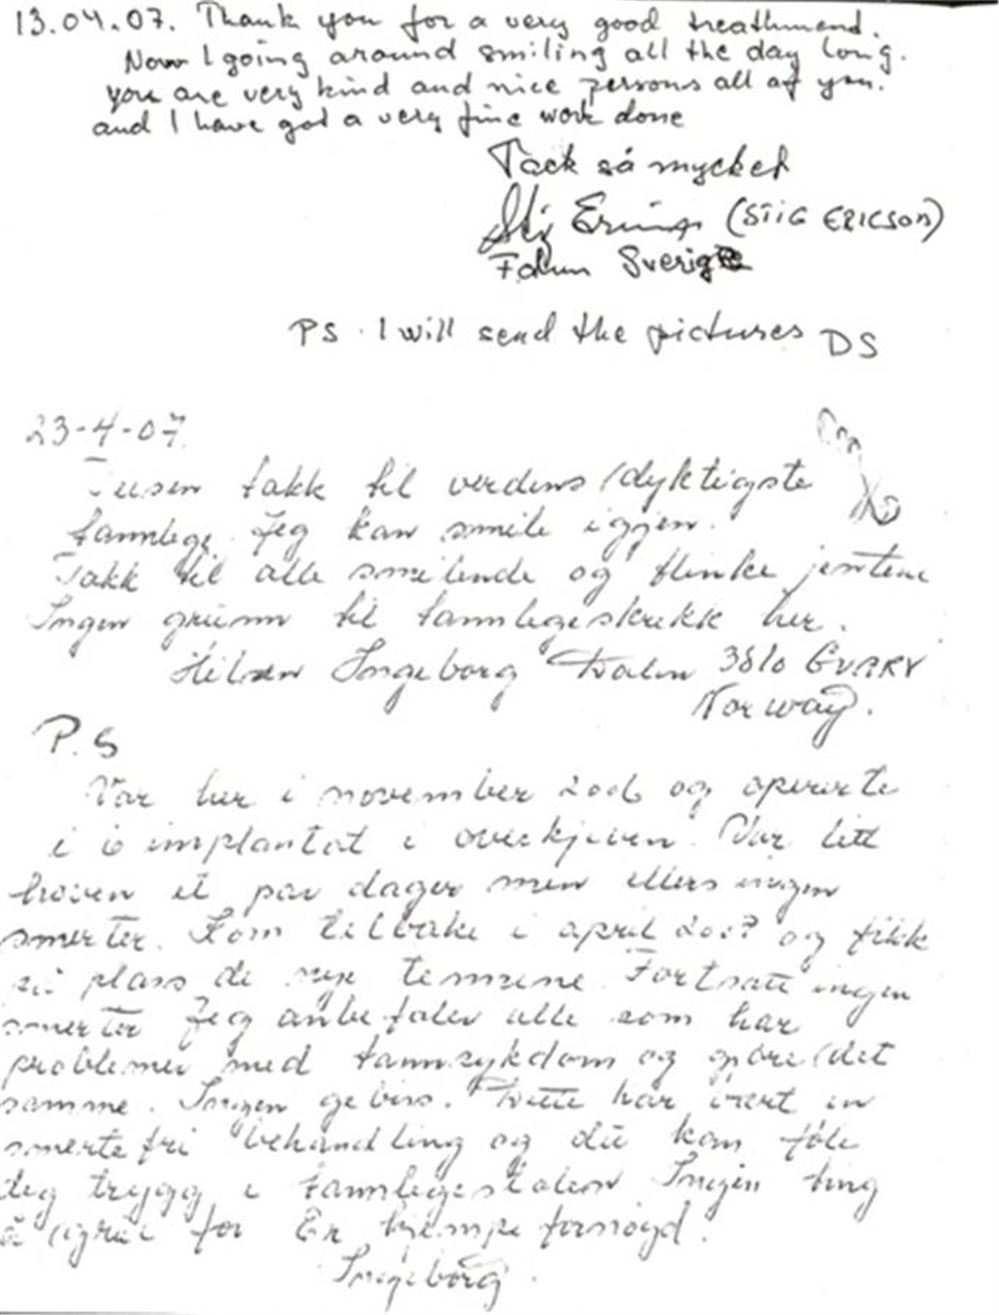 13.04.07. Thank you for a very good treathmend.
Now I going around smiling all the day long.
you are very kind and nice persons all of you.
and I have got a very fine work done
Tack så mycket
Stig Ericson (STIG ERICSON)
Falun Sverige
PS. I will send the pictures DS
23-4-07.
Tusen takk til verdens dyktigste
tannlege. Jeg kan smile igjen.
Takk til alle smilende og flinke jentene
Ingen grunn til tannlegeskrekk her.
Hilsen Ingeborg 3810 GVARV
Norway.
P.S
Var her i november 2006 og opererte
i 6 implantat i overkjeven. Var litt
hoven et par dager men ellers ingen
smerter. Kom tilbake i april 2007 og fikk
på plass de nye tennene. Fortsatt ingen
smerter Jeg anbefaler alle som har
problemer med tannsykdom og gjøre det
samme. Ingen gebiss. Dette har vært en
smertefri behandling og du kan føle
deg trygg i tannlegestolen Ingen ting
å grue for Er kjempe fornøyd.
Ingeborg.